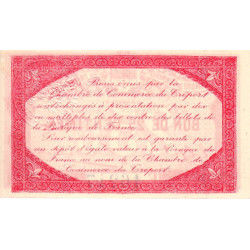 Bons émis par la
Chambre de Commerce du Tréport
échangés à présentation par dix
ou multiples de dix contre des billets de
la Banque de France.
Leur remboursement est garanti par
un dépôt d'égale valeur à la Banque de
France au nom de la Chambre de
Commerce du Tréport.